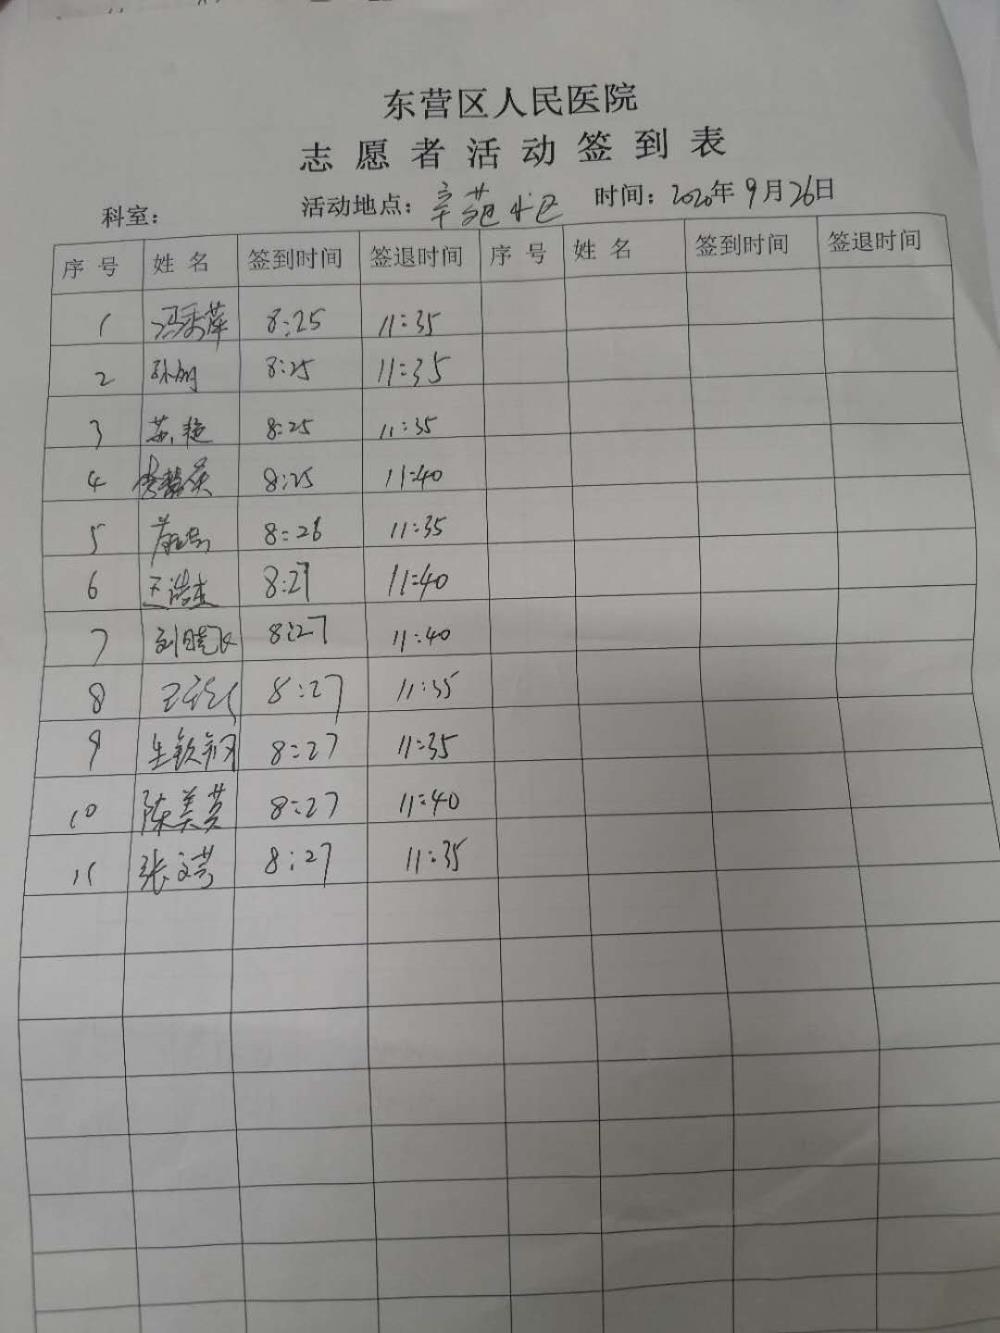 东营区人民医院
志愿者活动签到表
科室： 活动地点：辛苑小区 时间：2020年9月26日
序号 姓名 签到时间 签退时间 序号 姓名 签到时间 签退时间
1 冯秀萍 8:25 11:35
2 8:25 11:35
3 苏艳 8:25 11:35
4 8:25 11:40
5 8:26 11:35
6 王浩杰 8:27 11:40
7 刘晓飞 8:27 11:40
8 8:27 11:35
9 生钦钢 8:27 11:35
10 陈美芸 8:27 11:40
11 张文芳 8:27 11:35